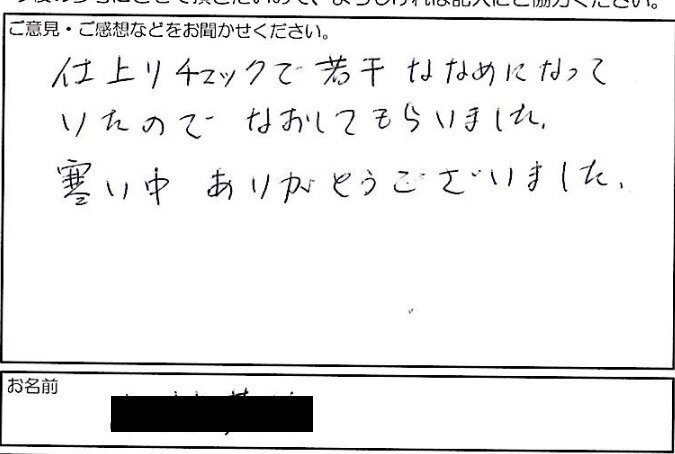 ご意見・ご感想などをお聞かせください。
仕上りチェックで若干ななめになって
いたのでなおしてもらいました。
寒い中 ありがとうございました。
お名前